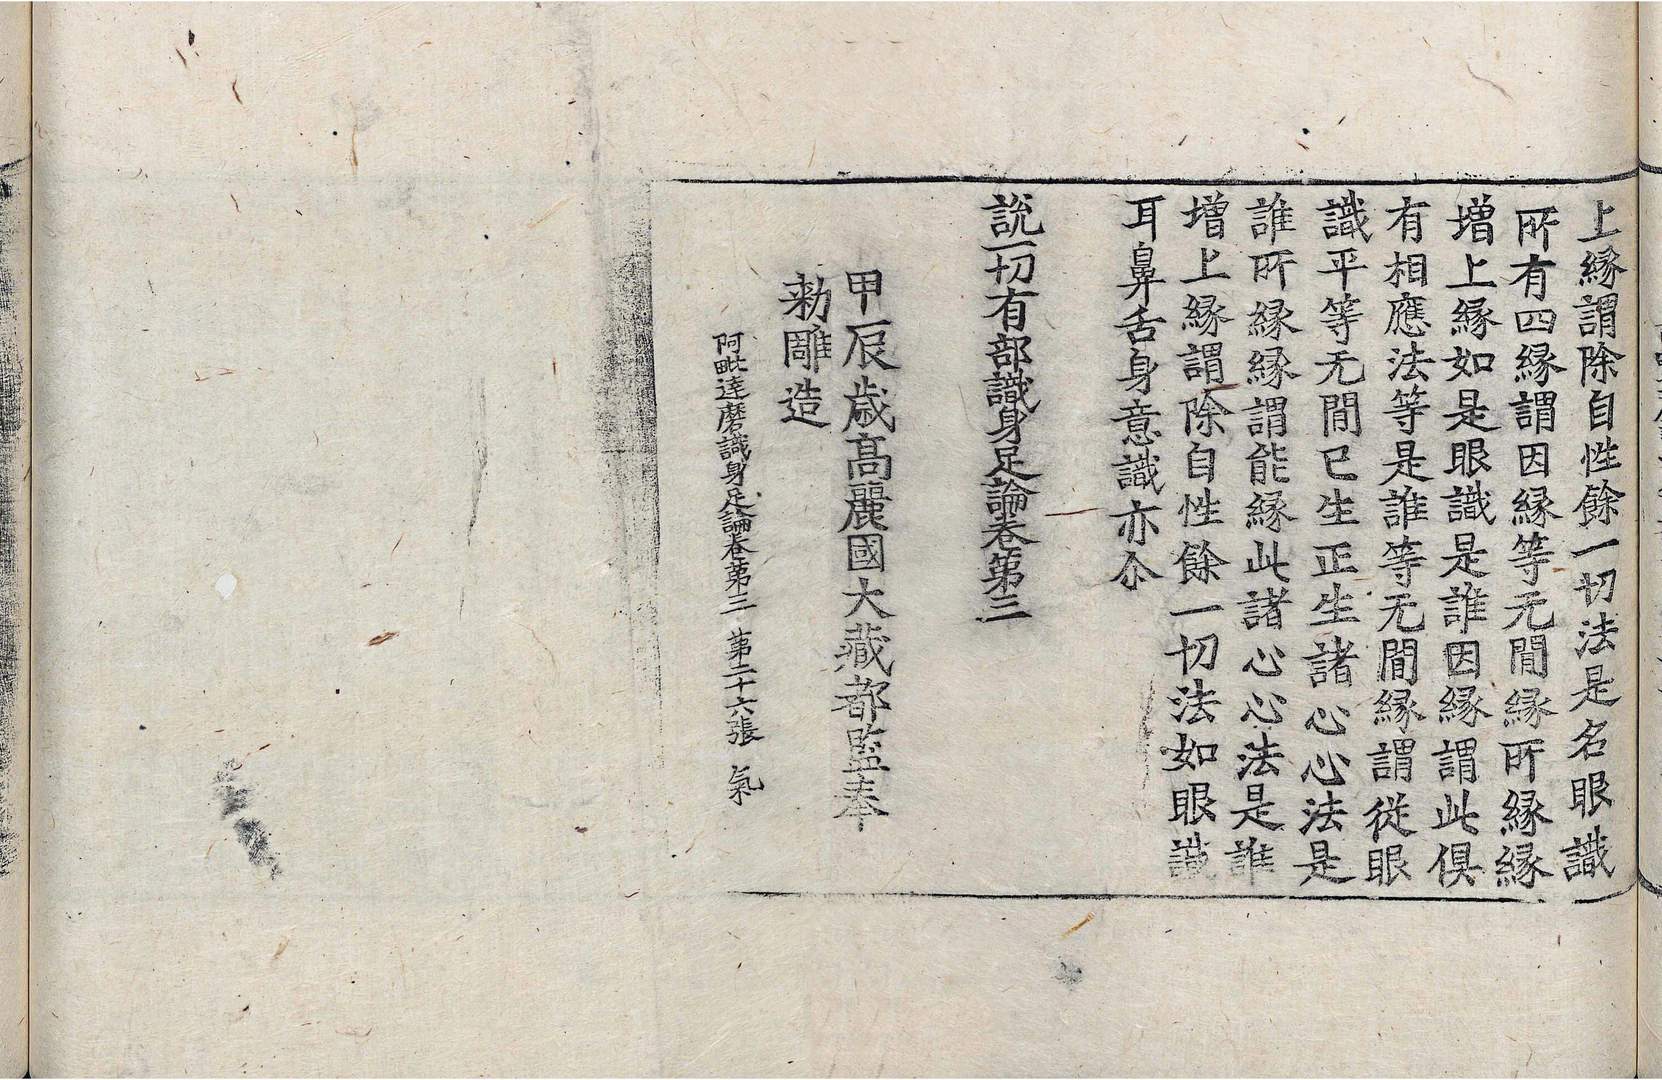 上縁謂除自性餘一切法是名眼識
所有四縁謂因縁等无閒縁所縁縁
増上縁如是眼識是誰因縁謂此俱
有相應法等是誰等无閒縁謂從眼
識平等无閒已生正生諸心心法是
誰所縁縁謂能縁此諸心心法是誰
増上縁謂除自性餘一切法如眼識
耳鼻舌身意識亦尒
說一切有部識身足論卷第三
甲辰歳高麗國大藏都監奉
勅雕造
阿毗達磨識身足論卷第三 第二十六張 氣